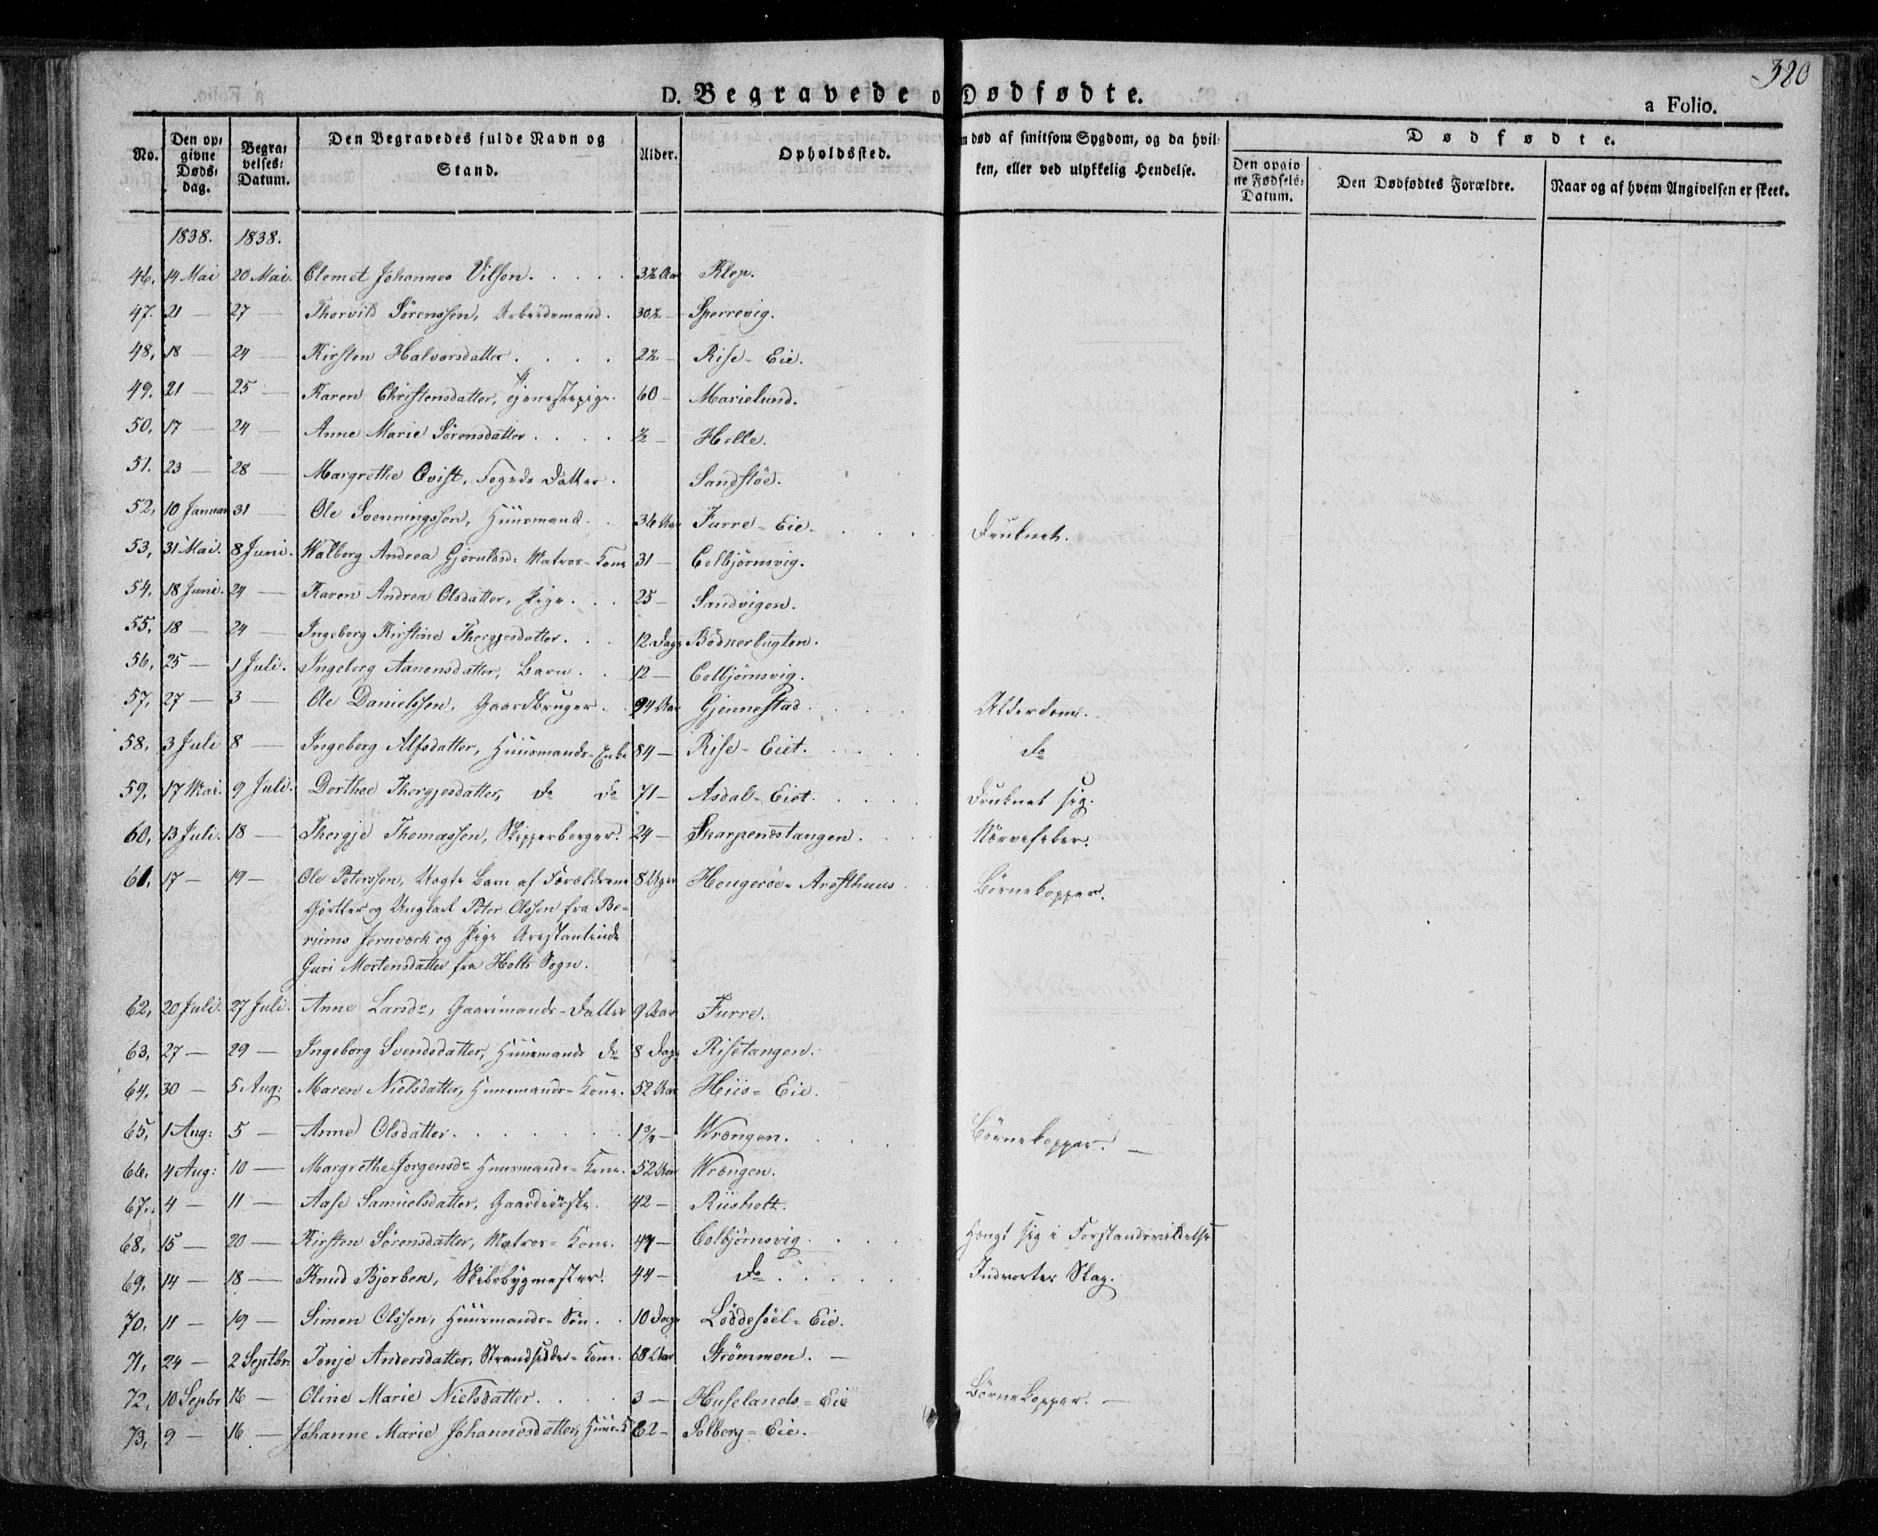 320
D. Begravede o Dødfødte.
a Folio.
No.
Den op-
givne
Døds-
dag.
Begra-
velses-
Datum.
Den Begravedes fulde Navn og
Stand.
Alder.
Opholdssted.
n død af smitsom Sygdom, og da hvil-
ken, eller ved ulykkelig Hendelse.
Dødfødte.
Den opgiv
ne Fødsels-
Datum.
Den Dødfødtes Forældre.
Naar og af hvem Angivelsen er skeet.
1838. 1838.
46. 14 Mai 20 Mai. Clemet Johannes Vilson. 3½ Aar Klep.
47. 21 — 27 — Thorvild Sörenssen, Arbeidsmand. 30½ — Sperrevig.
48. 18 — 24 — Kirsten Halvorsdatter. 2½ — Rise-Eie.
49. 21 — 25 — Karen Christensdatter, Tjenestepige. 60 — Marielund.
50. 17 — 24 — Anne Marie Sörensdatter. ½ — Helle.
51. 23 — 28 — Margrethe Qvist, Fogeds Datter. Sandstöe.
52. 10 Januar 31 — Ole Svenningssen, Huusmand. 36 Aar Furre-Eie. Druknet.
53. 31 Mai. 8 Juni. Walborg Andrea Gjeruldsd: Matros-Kone 31 — Colbjörnsvig.
54. 18 Juni. 24 — Karen Andrea Olsdatter, Pige. 25 — Sandvigen.
55. 18 — 24 — Ingeborg Kirstine Thergjesdatter. 12 Dage Bödkerbugten.
56. 25 — 1 Juli. Ingeborg Aanonsdatter, Barn. 12 — Colbjörnsvig.
57. 27 — 3 — Ole Danielssen, Gaardbruger. 94 Aar Gjennestad. Alderdom.
58. 3 Juli 8 — Ingeborg Alfsdatter, Huusmands-Enke 84 — Rise-Eiet. do
59. 17 Mai. 9 Juli. Dorthee Thergjesdatter, do do 71 — Asdal-Eiet. Druknet sig.
60. 13 Juli. 18 — Thergje Thomassen, Skipperborger. 24 — Skarpenestangen. Nörvefeber.
61. 17 — 19 — Ole Peterssen, Uægte Barn af Forældrene 8 Uger Hougeröe-Aresthuus. Börnekopper.
Gjörtler og Ungkarl Peter Olssen fra Be-
rums Jernværk og Pige Arestantinde
Guri Mortensdatter fra Holts Sogn.
62. 20 Juli. 27 Juli. Anne Lands, Gaardmands-Datter 9 Aar Furre.
63. 27 — 29 — Ingeborg Svendsdatter, Huusmands do 8 Dage Risetangen.
64. 30 — 5 Aug: Maren Nielsdatter, Huusmands-Kone. 52 Aar Hiis-Eie.
65. 1 Aug: 5 — Anne Olsdatter. 1¾ — Wrængen. Börnekopper. —
66. 4 Aug: 10 — Margrethe Jorgensdr Huusmands-Kone. 52 Aar Wrængen.
67. 4 — 11 — Aase Samuelsdatter, Gaardeierske. 42 — Rusholt.
68. 15 — 20 — Kirsten Sörensdatter, Matros-Kone. 47 — Colbjörnsvig. Hængt sig i Forstandsvildelse
69. 14 — 18 — Knud Bjorben, Skibsbygmester. 44 — do Indvortes Slag.
70. 11 — 19 — Simon Olssen, Huusmands-Sön. 10 Dage Löddesöel-Eie.
71. 24 — 2 Septbr. Tonje Andersdatter, Strandsidder-Kone. 68 Aar Strömmen. —
72. 10 Septbr 16 — Oline Marie Nielsdatter. 3 — Huselands-Eie Börnekopper. —
73. 9 — 16 — Johanne Marie Johannesdatter, Huusm.K. 62 — Solberg-Eie.